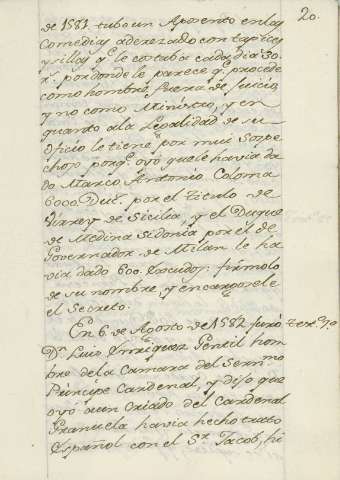 20.
de 1581 tubo un Aposento en las
Comedias aderezado con tapizes
y sillas q.e le costaba cada dia 30.
r.s por donde le parece q.e procede
como hombre fuera de juicio,
y no como Ministro, y en
quanto a la Legalidad de su
oficio le tiene por mui sospe
choso porq.e oyó que le havia da
do Marco Antonio Coloma
600 Duc. por el titulo de
Virrey de Sicilia, y el Duque
de Medina Sidonia por el de
Governador de Milan le ha
via dado 600. Escudos: firmolo
de su nombre, y encargosele
el Secreto.
En 6. de Agosto de 1582 juró
D.n Luis Enrriquez Gentil hom
bre de la Camara del Sermo
Principe Cardenal, y dijo que
oyó a un Criado del Cardenal
Granuela havia hecho trato
Español con el S.r Jacob, hi